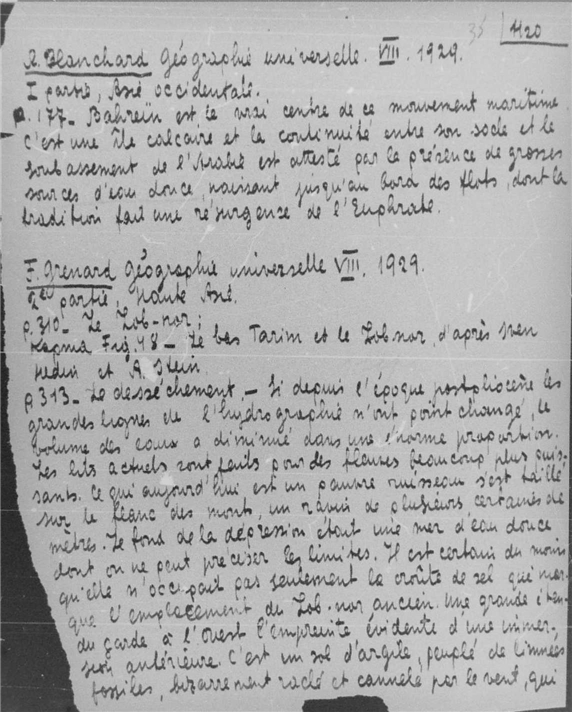 35 1120
R. Blanchard Géographie universelle. VIII. 1929.
I partie, Asie occidentale.
p. 177 - Bahreïn est le vrai centre de ce mouvement maritime.
C'est une île calcaire et la continuité entre son socle et le
soubassement de l'Arabie est attesté par la présence de grosses
sources d'eau douce, naissant jusqu'au bord des flots, dont la
tradition fait une résurgence de l'Euphrate.
F. Grenard Géographie universelle VIII. 1929.
2e partie, Haute Asie.
p. 310 - Le Lob-nor;
Fig. 48 - Le bas Tarim et le Lobnor, d'après Sven
Hedin et A. Stein
p. 313 - Le desséchement. - Si depuis l'époque postpliocène les
grandes lignes de l'hydrographie n'ont point changé, le
volume des eaux a diminué dans une énorme proportion.
Les lits actuels sont faits pour des fleuves beaucoup plus puis-
sants. Ce qui aujourd'hui est un pauvre ruisseau s'est taillé
sur le flanc des monts, un ravin de plusieurs centaines de
mètres. Le fond de la dépression était une mer d'eau douce
dont on ne peut préciser les limites. Il est certain du moins
qu'elle n'occupait pas seulement la croûte de sel qui mar-
que l'emplacement du Lob-nor ancien. Une grande éten-
du garde à l'ouest l'empreinte évidente d'une immer-
sion antérieure. C'est un sol d'argile, peuplé de limnées
fossiles, bizarrement raclé et cannelé par le vent, qui